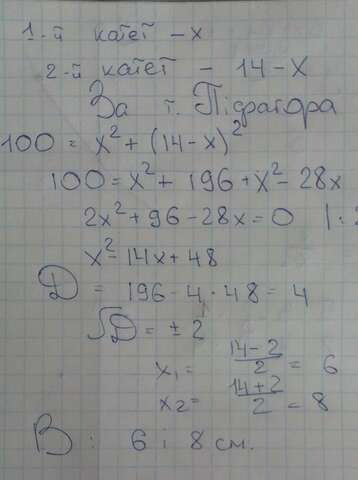 1-й катет – x
2-й катет – 14-x
За т. Піфагора
100 = x² + (14-x)²
100 = x² + 196 + x² - 28x
2x² + 96 - 28x = 0 | : 2
x² - 14x + 48
D = 196 - 4 · 48 = 4
√D = ± 2
x₁ = (14-2)/2 = 6
x₂ = (14+2)/2 = 8
В : 6 і 8 см.